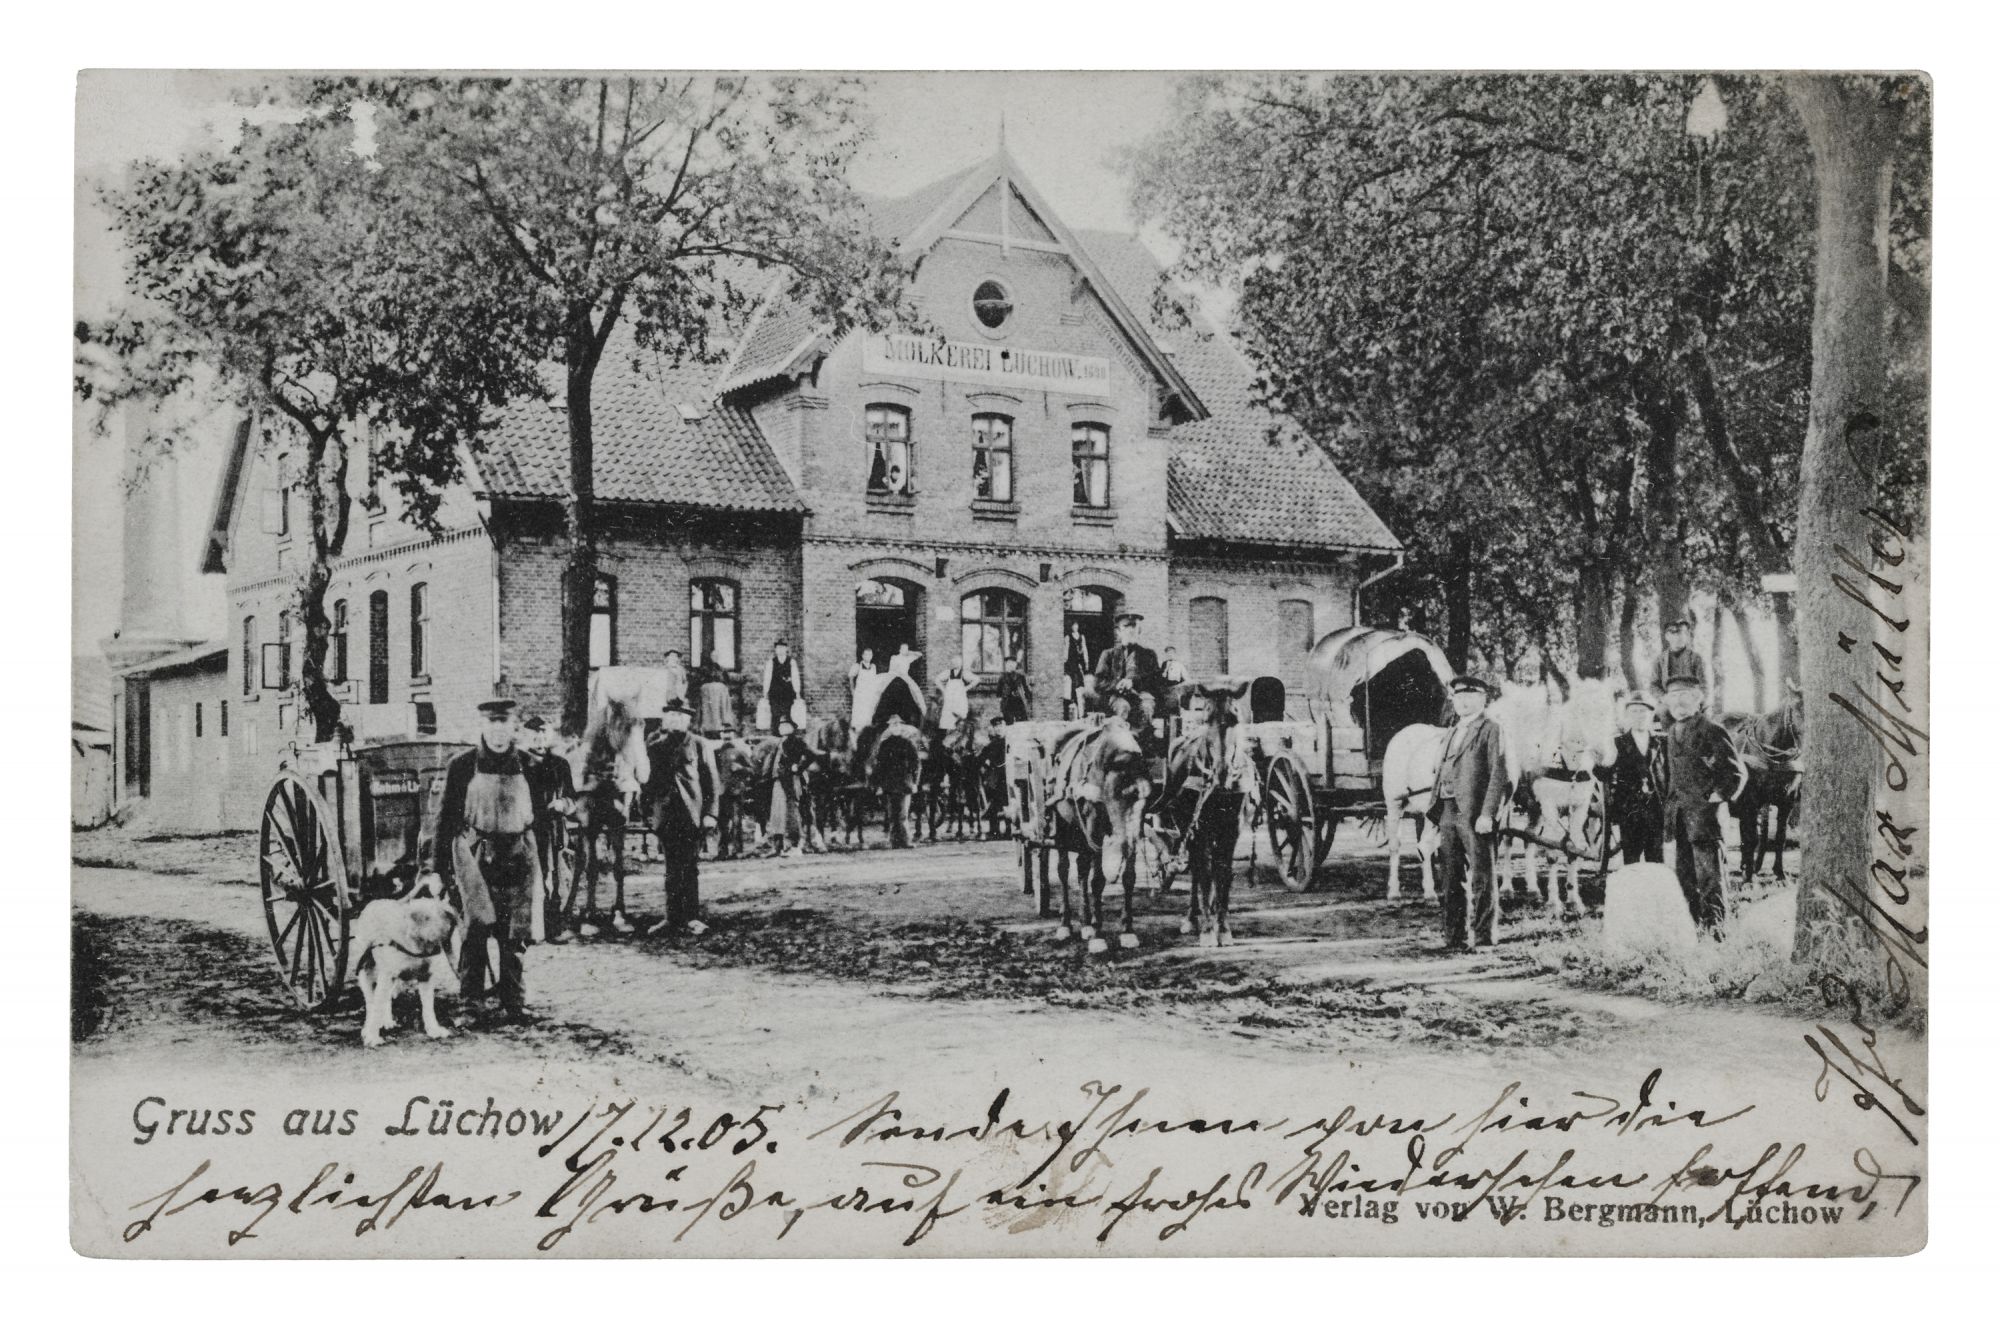 MOLKEREI LÜCHOW. 1888
Gruss aus Lüchow
17.12.05. Sende Ihnen von hier die
herzlichsten Grüße, auf ein frohes Wiedersehen hoffend,
Ihr Max Müller
Verlag von W. Bergmann, Lüchow